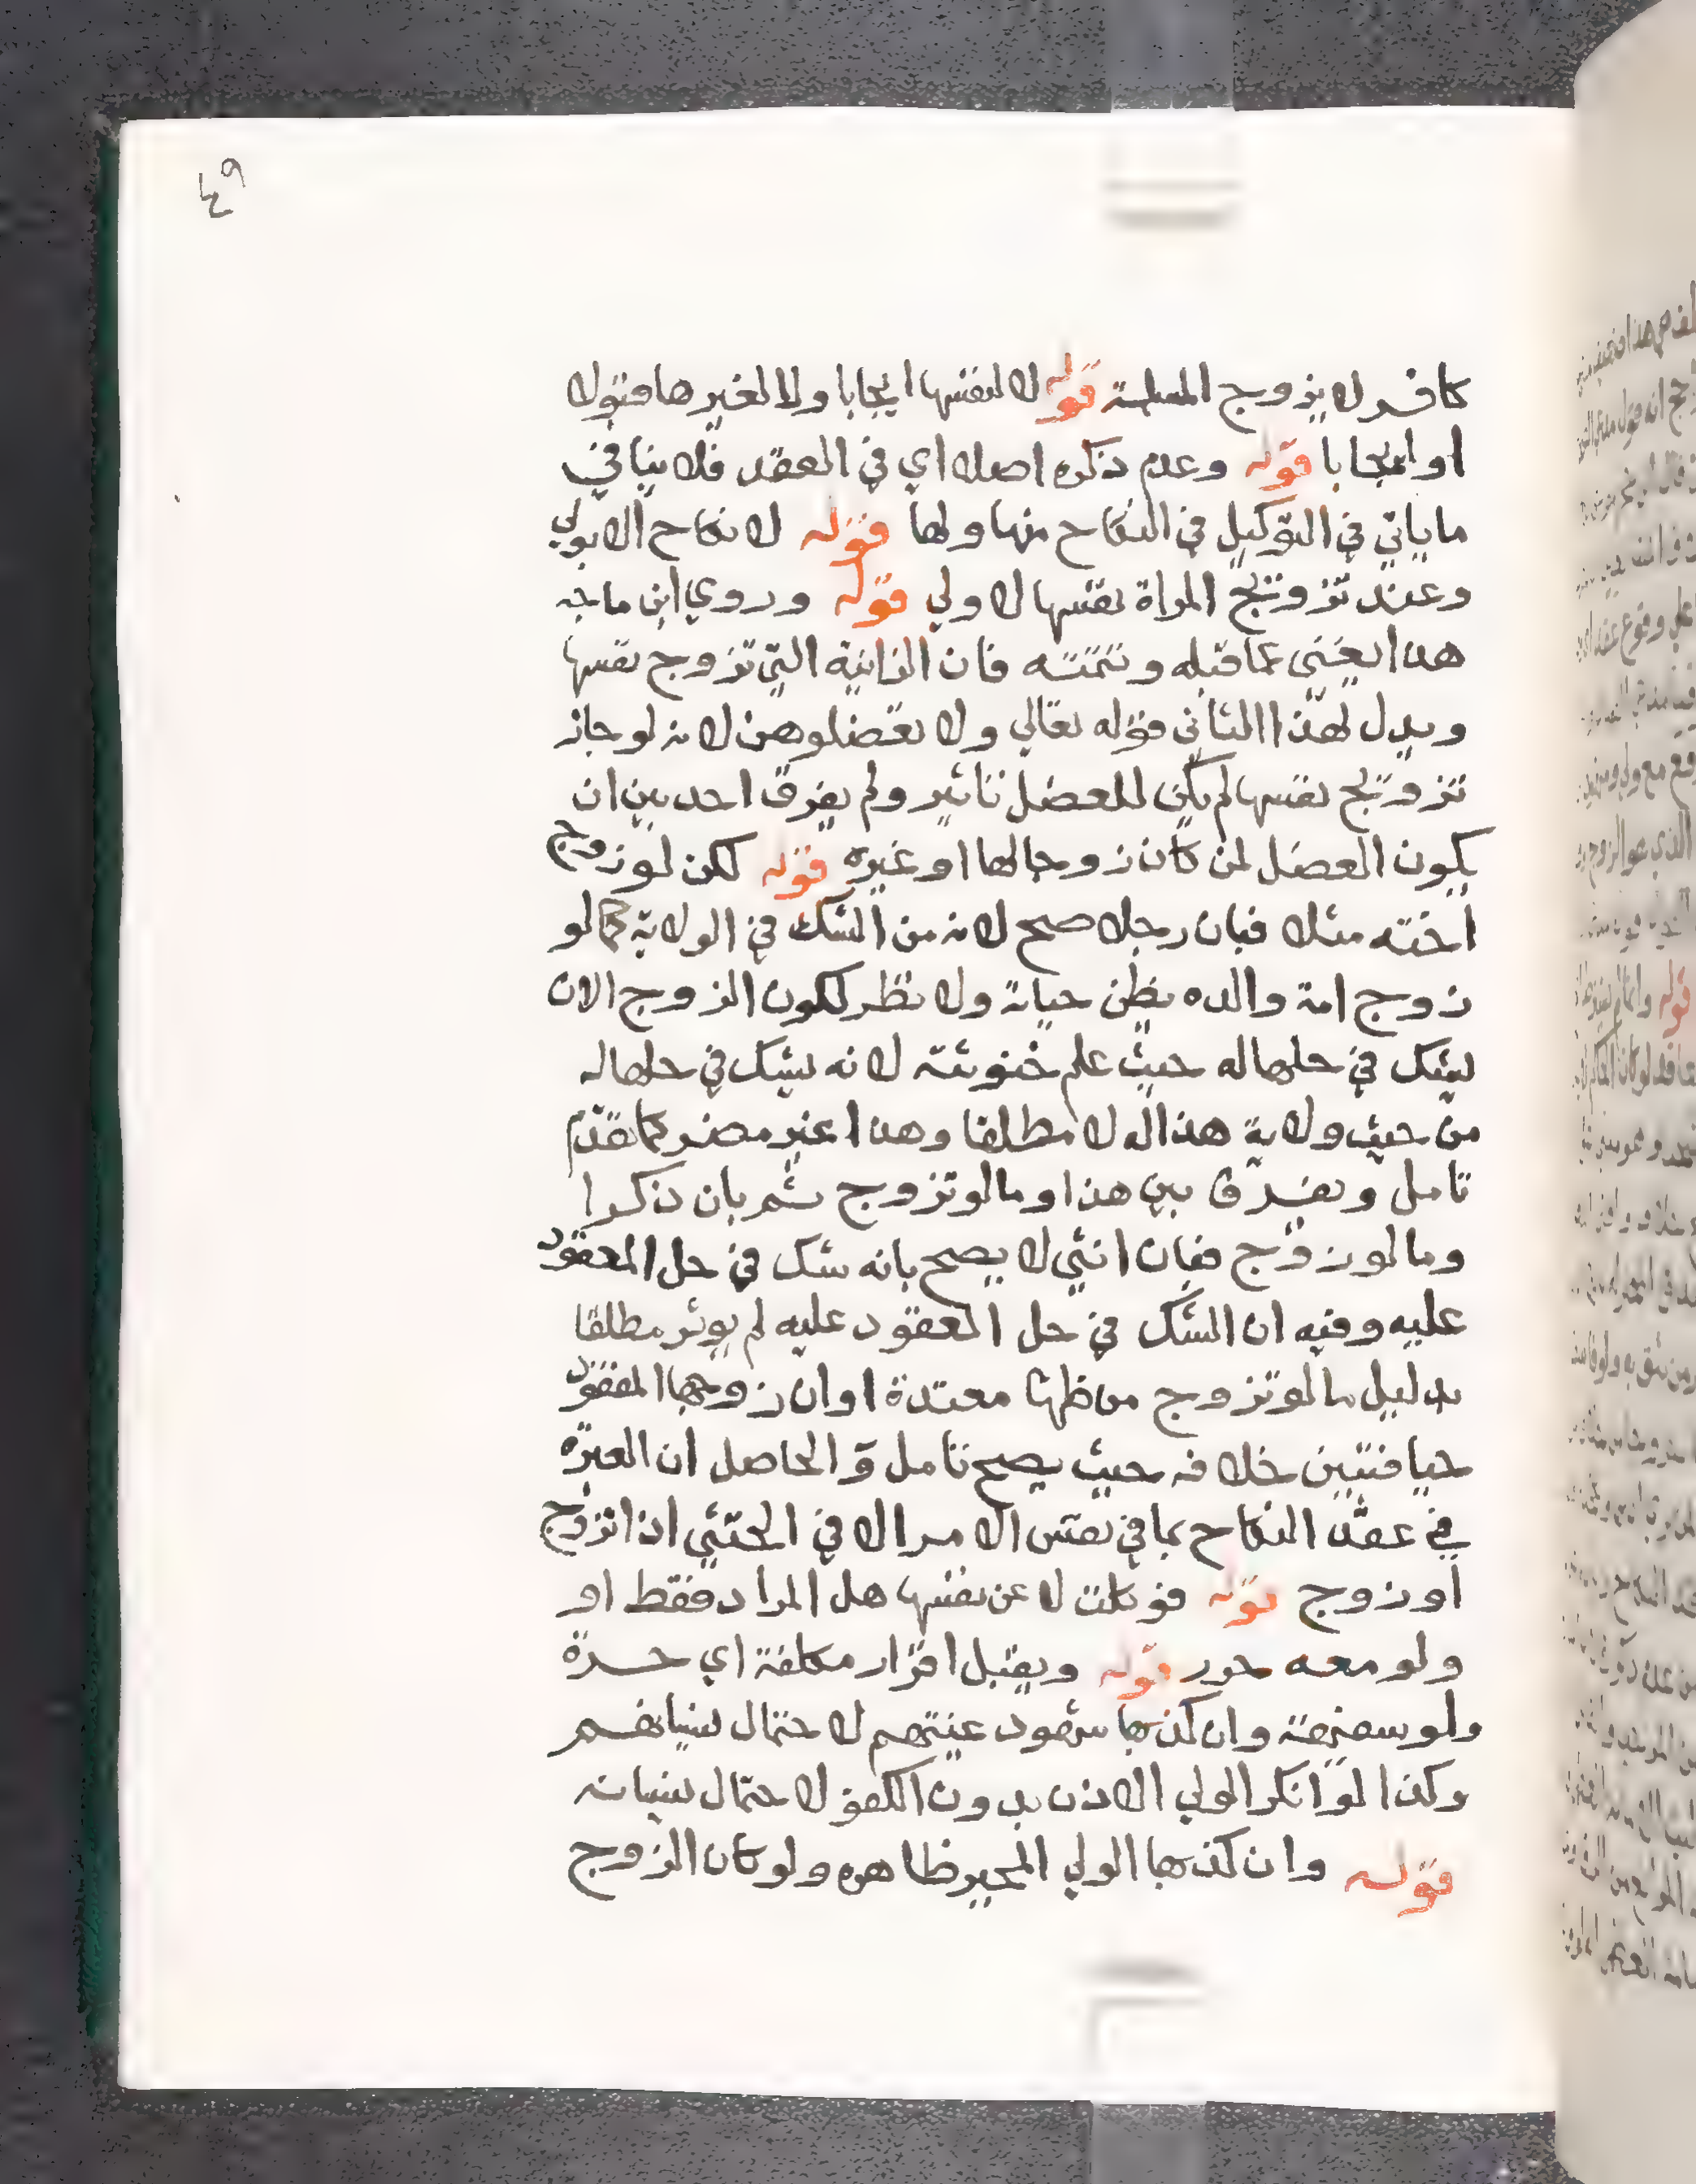 ٤٩
كافر لا يزوج المسلمة قوله لا لنفسها ايجابا ولا لغيرها قبولا
او ايجابا قوله وعدم ذكره اصلا اي في العقد فلا ينافي
ما ياتي في التوكيل في النكاح منها ولها قوله لا نكاح الا بولي
وعند تزويج المراة نفسها لا ولي قوله وروي ابن ماجه
هذا يغني عما قبله وتتمته فان الزانية التي تزوج نفسها
ويدل لهذا الثاني قوله تعالي ولا تعضلوهن لانه لو جاز
تزويج نفسها لم يكن للعضل تاثير ولم يفرق احد بين ان
يكون العضل لمن كان زوجا لها او غيره قوله لكن لو زوج
اخته مثلا فبان رجلا صح لانه من الشك في الولاية كما لو
زوج امة والده يظن حياته ولا نظر لكون الزوج الان
يشك في حلها له حيث علم خنوثته لانه يشك في حلها له
من حيث ولاية هذا له لا مطلقا وهذا غير مضر كما تقدم
تامل ويفرق بين هذا وما لو تزوج ثم بان ذكرا
وما لو زوج فبان انثي لا يصح بانه شك في حل المعقود
عليه وفيه ان الشك في حل المعقود عليه لم يوثر مطلقا
بدليل ما لو تزوج من ظنها معتدة او ان زوجها المفقود
حيا فتبين خلافه حيث يصح تامل والحاصل ان العبرة
في عقد النكاح بما في نفس الامر الا في الخنثي اذا تزوج
او زوج قوله فوكلت لا عن نفسها هل المراد فقط او
ولو معه حرر قوله ويقبل اقرار مكلفة اي حرة
ولو سفيهة وان كذبها شهود عينتهم لاحتمال نسيانهم
وكذا لو انكر الولي الاذن بدون الكفؤ لاحتمال نسيانه
قوله وان كذبها الولي المجبر ظاهره ولو كان الزوج